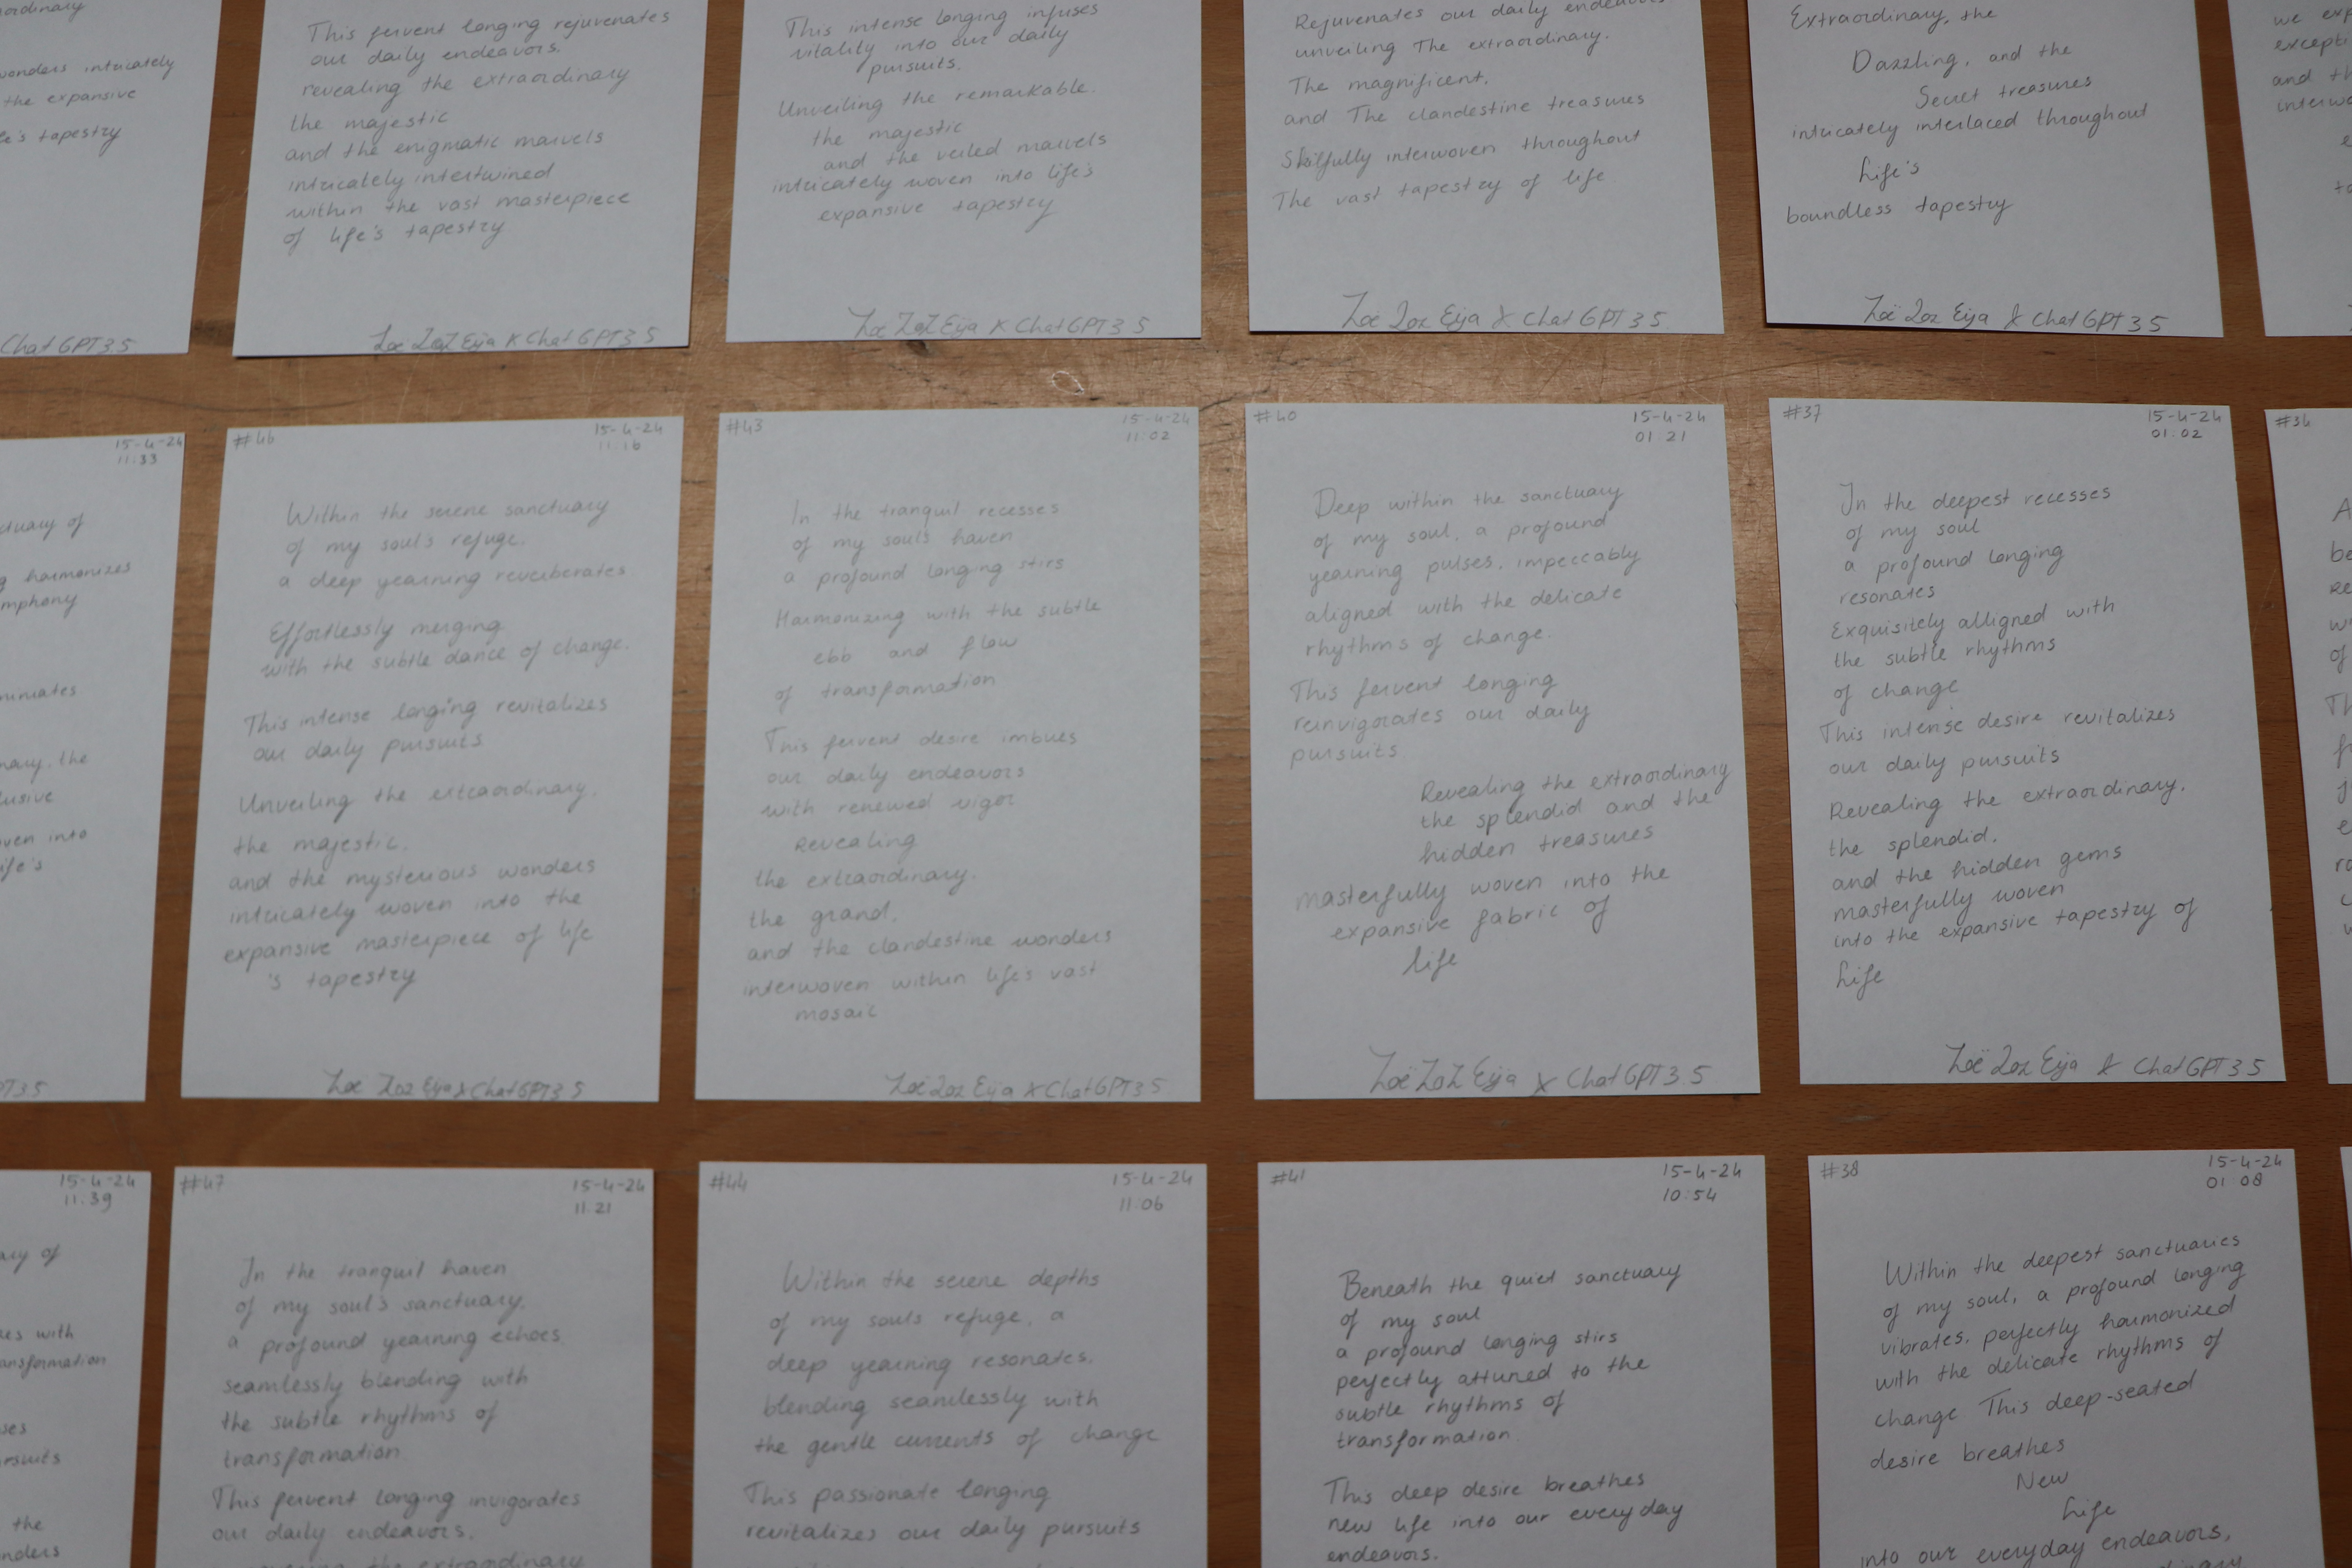 ordinary
wonders intricately
the expansive
life's tapestry
Chat GPT 3.5
This fervent longing rejuvenates
our daily endeavors.
revealing the extraordinary
the majestic
and the enigmatic marvels
intricately intertwined
within the vast masterpiece
of life's tapestry
Zoë Zoz Eija X Chat GPT 3.5
This intense longing infuses
vitality into our daily
pursuits.
Unveiling the remarkable.
the majestic
and the veiled marvels
intricately woven into life's
expansive tapestry
Zoë Zoz Eija X Chat GPT 3.5
Rejuvenates our daily endeavors
unveiling The extraordinary.
The magnificent.
and The clandestine treasures
Skilfully interwoven throughout
The vast tapestry of life
Zoë Zoz Eija X Chat GPT 3.5
Extraordinary, the
Dazzling, and the
Secret treasures
intricately interlaced throughout
Life's
boundless tapestry
Zoë Zoz Eija X Chat GPT 3.5
we
and
15-4-24
11:33
of
harmonizes
the
into
life's
#46
15-4-24
11:16
Within the serene sanctuary
of my soul's refuge.
a deep yearning reverberates
Effortlessly merging
with the subtle dance of change.
This intense longing revitalizes
our daily pursuits
Unveiling the extraordinary.
the majestic.
and the mysterious wonders
intricately woven into the
expansive masterpiece of life
's tapestry
Zoë Zoz Eija X Chat GPT 3.5
#43
15-4-24
11:02
In the tranquil recesses
of my souls haven
a profound longing stirs
Harmonizing with the subtle
ebb and flow
of transformation
This fervent desire imbues
our daily endeavors
with renewed vigor
Revealing
the extraordinary.
the grand.
and the clandestine wonders
interwoven within life's vast
mosaic
Zoë Zoz Eija X Chat GPT 3.5
#40
15-4-24
01:21
Deep within the sanctuary
of my soul, a profound
yearning pulses, impeccably
aligned with the delicate
rhythms of change.
This fervent longing
reinvigorates our daily
pursuits.
Revealing the extraordinary
the splendid and the
hidden treasures
masterfully woven into the
expansive fabric of
life
Zoë Zoz Eija X Chat GPT 3.5
#37
15-4-24
01:02
In the deepest recesses
of my soul
a profound longing
resonates
Exquisitely alligned with
the subtle rhythms
of change
This intense desire revitalizes
our daily pursuits
Revealing the extraordinary.
the splendid.
and the hidden gems
masterfully woven
into the expansive tapestry of
Life
Zoë Zoz Eija X Chat GPT 3.5
of
15-4-24
11:39
of
with
the
#47
15-4-24
11:21
In the tranquil haven
of my soul's sanctuary.
a profound yearning echoes
seamlessly blending with
the subtle rhythms of
transformation.
This fervent longing invigorates
our daily endeavors.
the extraordinary
#44
15-4-24
11:06
Within the serene depths
of my souls refuge, a
deep yearning resonates.
blending seamlessly with
the gentle currents of change
This passionate longing
revitalizes our daily pursuits
#41
15-4-24
10:54
Beneath the quiet sanctuary
of my soul
a profound longing stirs
perfectly attuned to the
subtle rhythms of
transformation.
This deep desire breathes
new life into our everyday
endeavors.
#38
15-4-24
01:08
Within the deepest sanctuaries
of my soul, a profound longing
vibrates, perfectly harmonized
with the delicate rhythms of
change This deep-seated
desire breathes
New
Life
into our everyday endeavors,